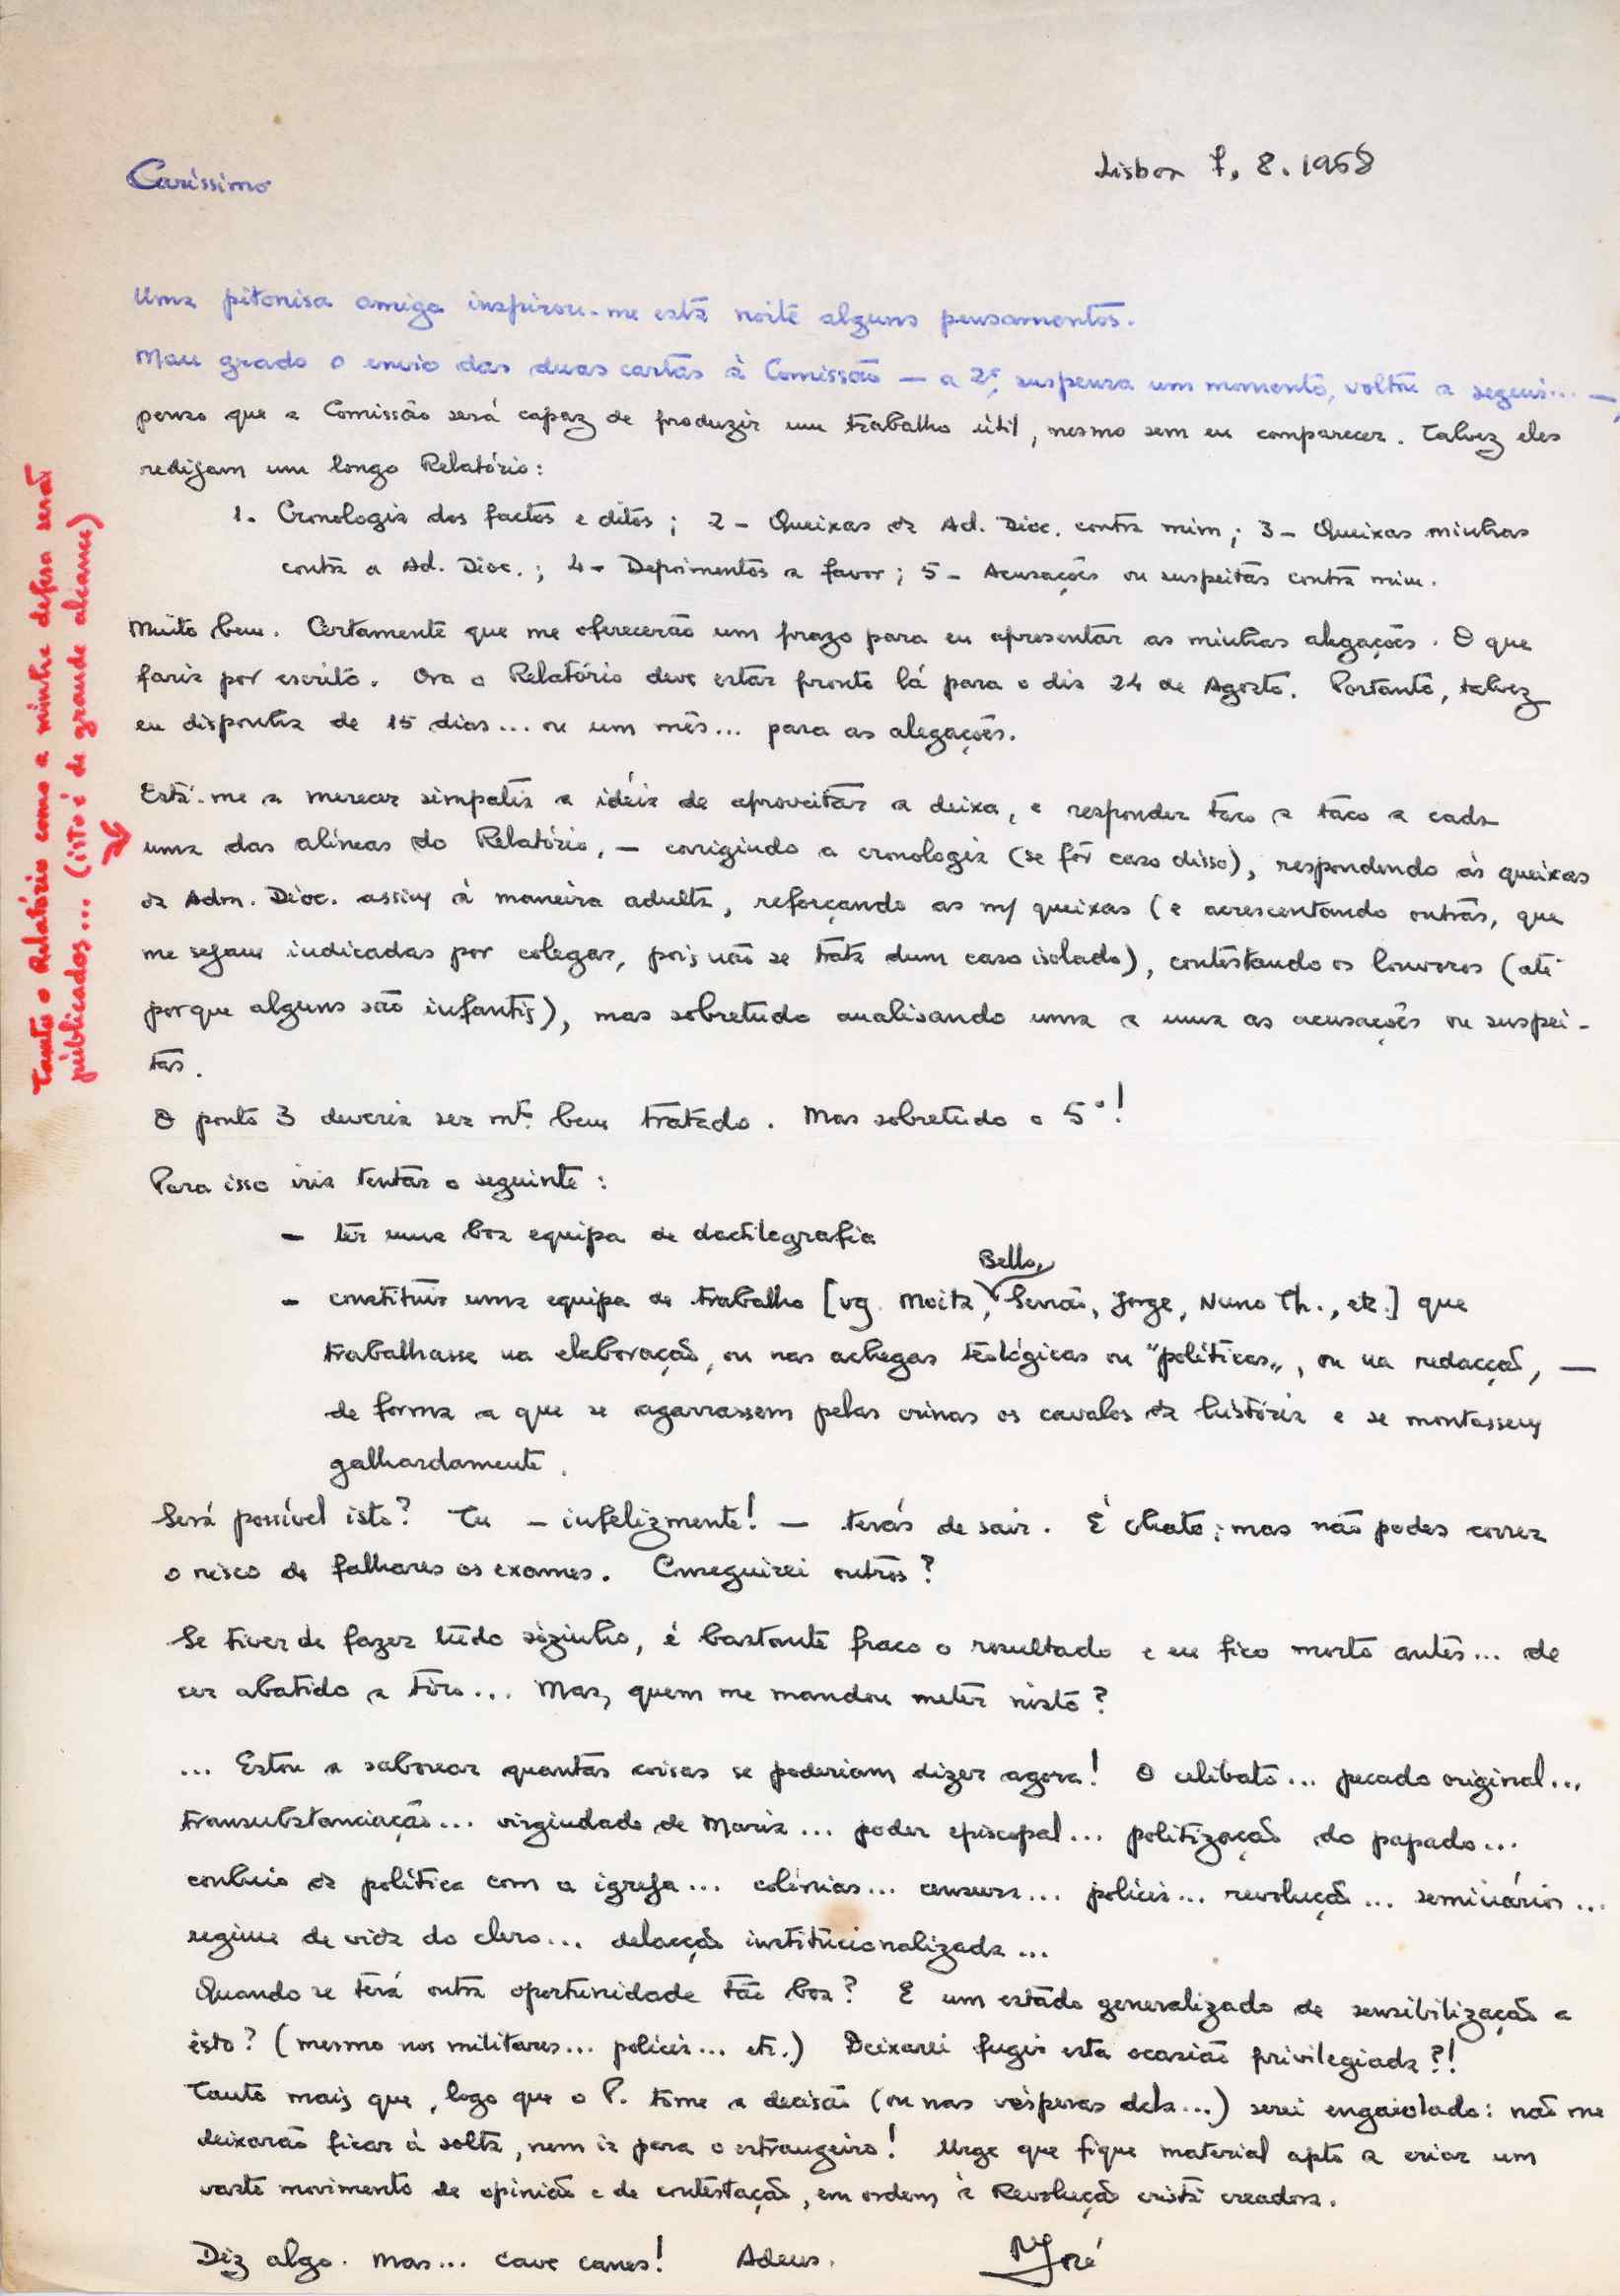 Lisboa 7.8.1968
Caríssimo
Uma pitonisa amiga inspirou-me esta noite alguns pensamentos.
Mau grado o envio das duas cartas à Comissão — a 2ª, suspensa um momento, voltou a seguir... —,
penso que a Comissão será capaz de produzir um trabalho útil, mesmo sem eu comparecer. Talvez eles
redijam um longo Relatório:
1. Cronologia dos factos e ditos; 2 - Queixas da Ad. Dioc. contra mim; 3 - Queixas minhas
contra a Ad. Dioc.; 4 - Depoimentos a favor; 5 - Acusações ou suspeitas contra mim.
Muito bem. Certamente que me oferecerão um prazo para eu apresentar as minhas alegações. O que
faria por escrito. Ora o Relatório deve estar pronto lá para o dia 24 de Agosto. Portanto, talvez
eu disponha de 15 dias... ou um mês... para as alegações.
Está-me a merecer simpatia a ideia de aproveitar a deixa, e responder taco a taco a cada
uma das alíneas do Relatório, — corrigindo a cronologia (se fôr caso disso), respondendo às queixas
da Adm. Dioc. assim à maneira adulta, reforçando as m/ queixas (e acrescentando outras, que
me sejam indicadas por colegas, pois não se trata dum caso isolado), contestando os louvores (até
porque alguns são infantis), mas sobretudo analisando uma a uma as acusações ou suspei-
tas.
O ponto 3 deveria ser mtº bem tratado. Mas sobretudo o 5º!
Para isso iria tentar o seguinte:
- ter uma boa equipa de dactilografia
- constituir uma equipa de trabalho [vg. Moita, Bello, Serrão, Jorge, Nuno Th., etc.] que
trabalhasse na elaboração, ou nas achegas teológicas ou "políticas", ou na redacção, —
de forma a que se agarrassem pelas crinas os cavalos da história e se montassem
galhardamente.
Será possível isto? Tu — infelizmente! — terás de sair. É chato; mas não podes correr
o risco de falhares os exames. Conseguirei outros?
Se tiver de fazer tudo sòzinho, é bastante fraco o resultado e eu fico morto antes... de
ser abatido a tiro... Mas, quem me mandou meter nisto?
... Estou a saborear quantas coisas se poderiam dizer agora! O celibato... pecado original...
transubstanciação... virgindade de Maria... poder episcopal... politização do papado...
conluio da política com a igreja... colónias... censura... polícia... revolução... seminários...
regime de vida do clero... delacção institucionalizada...
Quando se terá outra oportunidade tão boa? E um estado generalizado de sensibilização a
isto? (mesmo nos militares... polícia... etc.) Deixarei fugir esta ocasião privilegiada?!
Tanto mais que, logo que o P. tome a decisão (ou nas vésperas dela...) serei engaiolado: não me
deixarão ficar à solta, nem ir para o estrangeiro! Urge que fique material apto a criar um
vasto movimento de opinião e de contestação, em ordem à Revolução cristã creadora.
Diz algo. Mas... cave canes! Adeus.
José
Tanto o Relatório como a minha defesa serão
publicados... (isto é de grande alcance)